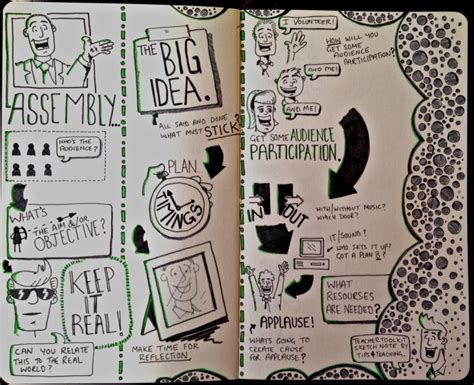 ASSEMBLY...
WHO'S THE
AUDIENCE?
WHAT'S
THE AIM &/OR
OBJECTIVE?
KEEP
IT
REAL!
CAN YOU RELATE
THIS TO THE REAL
WORLD?
THE
BIG
IDEA.
ALL SAID AND DONE
WHAT MUST STICK?
PLAN...
THINGS
MAKE TIME FOR
REFLECTION.
I VOLUNTEER!
AND ME!
AND ME!
HOW WILL YOU
GET SOME
AUDIENCE
PARTICIPATION?
GET SOME AUDIENCE
PARTICIPATION.
IN
OUT
WITH/WITHOUT MUSIC?
WHICH DOOR?
IT/SOUND?
WHO SETS IT UP?
GOT A PLAN B?
APPLAUSE!
WHAT'S GOING TO
CREATE CAUSE
FOR APPLAUSE?
WHAT
RESOURSES
ARE NEEDED?
TEACHERTOOLKIT
SKETCH NOTE BY
TIPS4TEACHING.